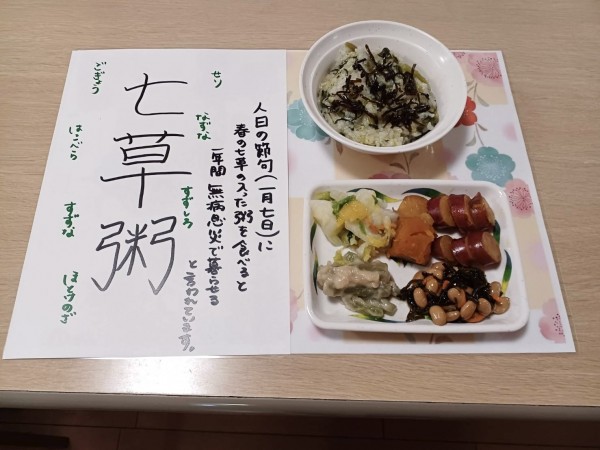 人日の節句(一月七日)に
春の七草の入った粥を食べると
一年間 無病息災で暮らせる
と言われています。
七草粥
せり
なずな
すずしろ
ごぎょう
はこべら
すずな
ほとけのざ